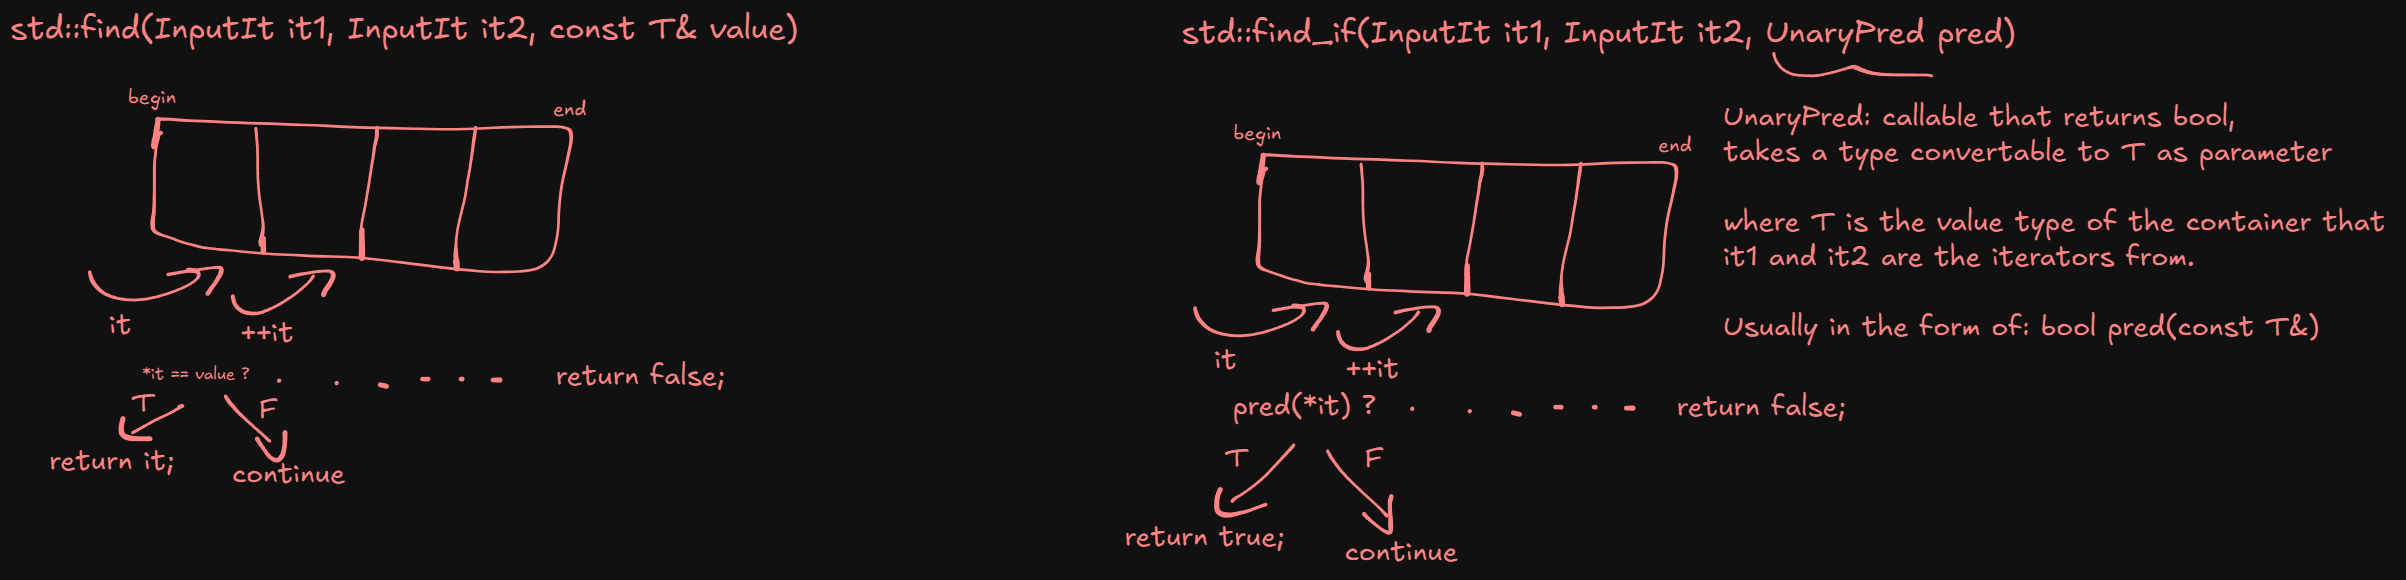 std::find(InputIt it1, InputIt it2, const T& value)
begin
end
it
++it
*it == value ?
return false;
T
F
return it;
continue
std::find_if(InputIt it1, InputIt it2, UnaryPred pred)
begin
end
it
++it
pred(*it) ?
return false;
T
F
return true;
continue
UnaryPred: callable that returns bool,
takes a type convertable to T as parameter
where T is the value type of the container that
it1 and it2 are the iterators from.
Usually in the form of: bool pred(const T&)